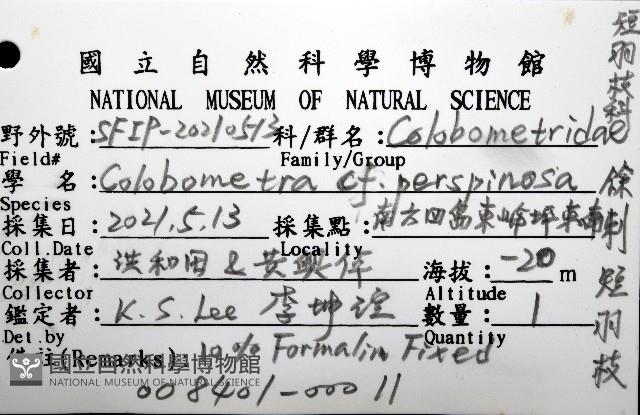 國立自然科學博物館
NATIONAL MUSEUM OF NATURAL SCIENCE
野外號：SFIP-20210513 科/群名：Colobometridae
Field# Family/Group
學名：Colobometra cf. perspinosa
Species
採集日：2021.5.13 採集點：南方四島東嶼坪東南
Coll.Date Locality
採集者：洪和田 & 黃興倬 海拔：-20 m
Collector Altitude
鑑定者：K.S. Lee 李坤瑄 數量：1
Det.by Quantity
備註(Remarks)：10% Formalin Fixed
008401-00011
短羽枝科
徐刺短羽枝
國立自然科學博物館
NATIONAL MUSEUM OF NATURAL SCIENCE